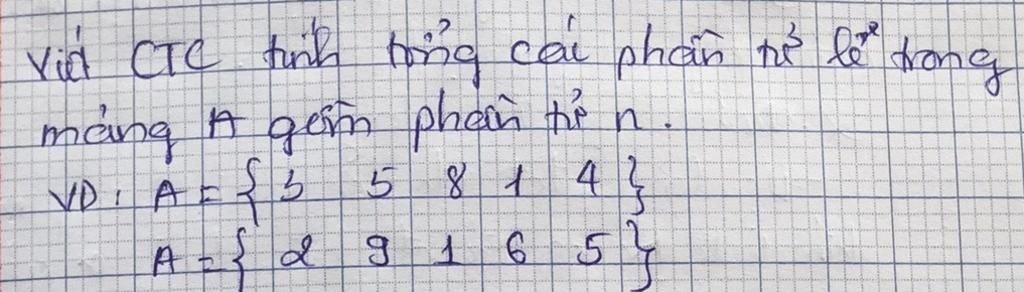 Viết CTC tính tổng các phần tử lẻ trong
mảng A gồm phần tử n.
VD: A = { 3 5 8 1 4 }
A = { 2 9 1 6 5 }